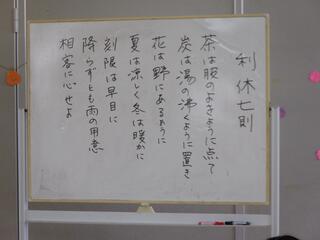 利休七則
茶は服のよきように点て
炭は湯の沸くように置き
花は野にあるように
夏は涼しく冬は暖かに
刻限は早目に
降らずとも雨の用意
相客に心せよ